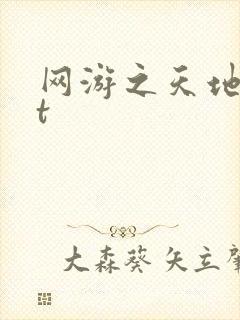 网游之天地
t
大森葵 矢立肇